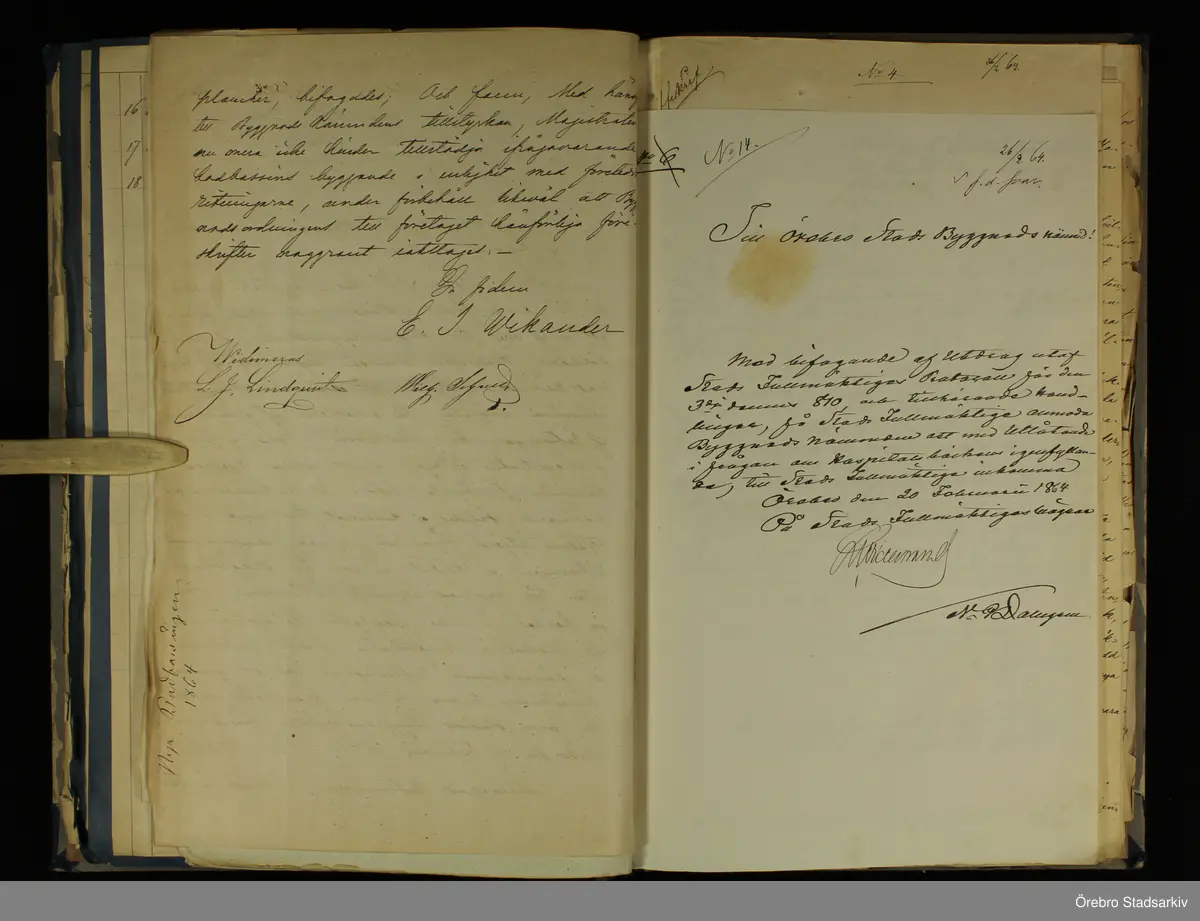 16.
17.
18.
plancher, bifogades; Och fann, Med häns
till Byggnads Nämndens tillstyrkan, Magistraten
nu mera icke hinder tillstädja ifrågavarande
badbassins byggande i enlighet med företedda
ritningarne, under förbehåll likväl att Bygg
nadsordningens till företaget hänförliga före-
skrifter noggrant iakttages. —
In fidem
E. J. Wikander
Widimeras
L. J. Lindquist
Nya Badhusingen
1864
No 4
26/2 64.
No 6
No 14.
26/2 64.
f. d. svar.
Till Örebro Stads Byggnads nämnd!
Med bifogande af Utdrag utaf
Stads Fullmäktiges Protocoll för den
3dje dennes § 10 och tillhörande hand-
lingar, få Stads Fullmäktige anmoda
Byggnads Nämnden att med Utlåtande
i frågan om Hospitalsbäckens igenfyllan-
de, till Stads Fullmäktige inkomma
Örebro den 20 Februarii 1864
På Stads Fullmäktiges vägnar
Örebro Stadsarkiv